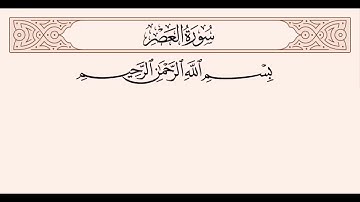 سُورَةُ العَصْرِ
بِسْمِ اللَّهِ الرَّحْمَٰنِ الرَّحِيمِ